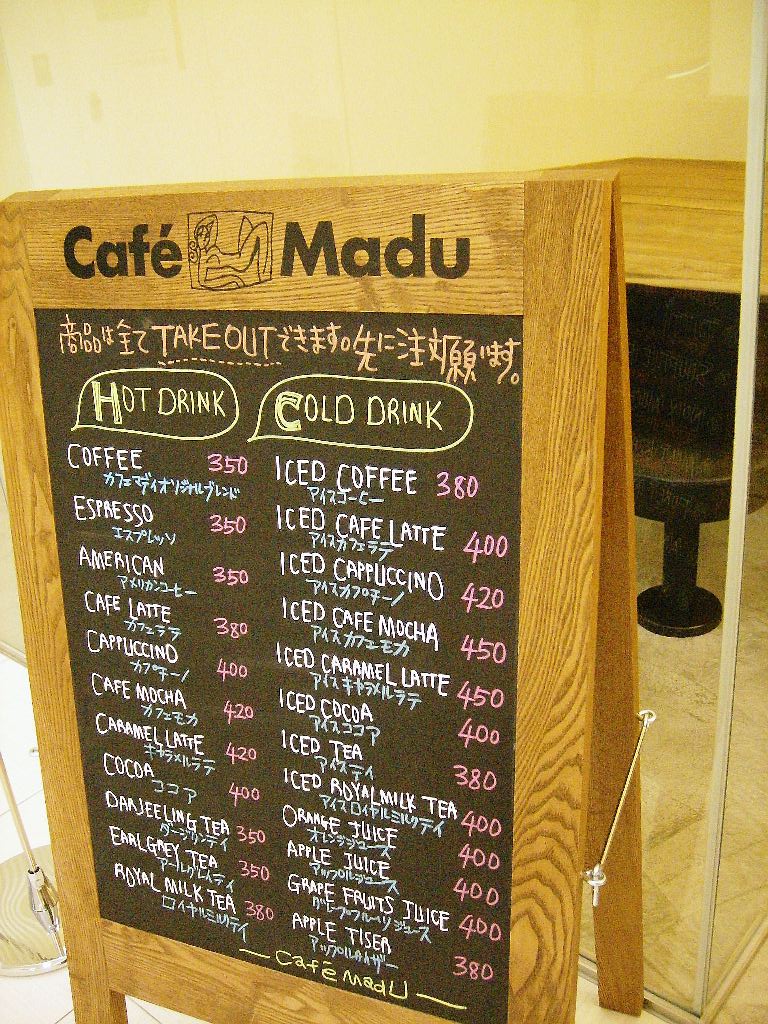 Café Madu
商品は全てTAKEOUTできます。先に注文願います。
HOT DRINK
COFFEE 350
カフェマディオリジナルブレンド
ESPRESSO 350
エスプレッソ
AMERICAN 350
アメリカンコーヒー
CAFE LATTE 380
カフェラテ
CAPPUCCINO 400
カプチーノ
CAFE MOCHA 420
カフェモカ
CARAMEL LATTE 420
キャラメルラテ
COCOA 400
ココア
DARJEELING TEA 350
ダージリンティ
EARLGREY TEA 350
アールグレイティ
ROYAL MILK TEA 380
ロイヤルミルクティ
COLD DRINK
ICED COFFEE 380
アイスコーヒー
ICED CAFE LATTE 400
アイスカフェラテ
ICED CAPPUCCINO 420
アイスカプチーノ
ICED CAFE MOCHA 450
アイスカフェモカ
ICED CARAMEL LATTE 450
アイスキャラメルラテ
ICED COCOA 400
アイスココア
ICED TEA 380
アイスティ
ICED ROYALMILK TEA 400
アイスロイヤルミルクティ
ORANGE JUICE 400
オレンジジュース
APPLE JUICE 400
アップルジュース
GRAPE FRUITS JUICE 400
グレープフルーツジュース
APPLE TISER 380
アップルタイザー
Café MADU